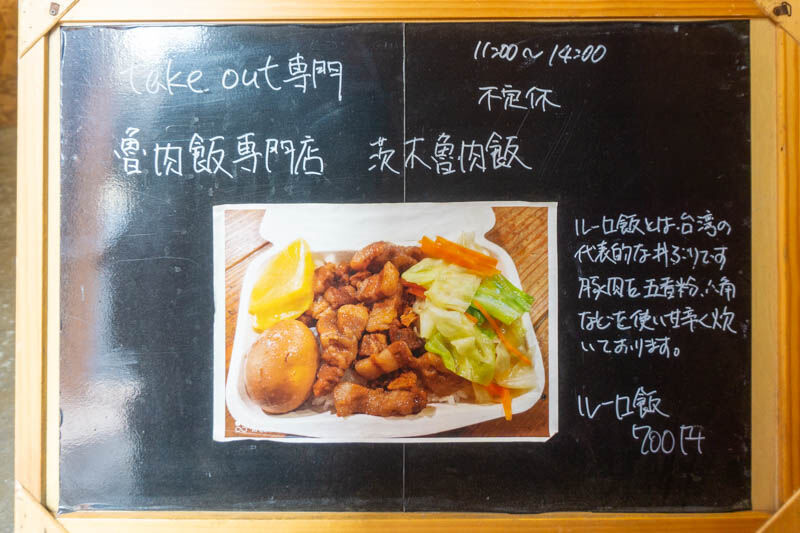 take out専門
11:00〜14:00
不定休
魯肉飯専門店 茨木魯肉飯
ルーロ飯とは、台湾の
代表的な丼ぶりです
豚肉を五香粉、八角
などを使い甘辛く炊
いております。
ルーロ飯
700円